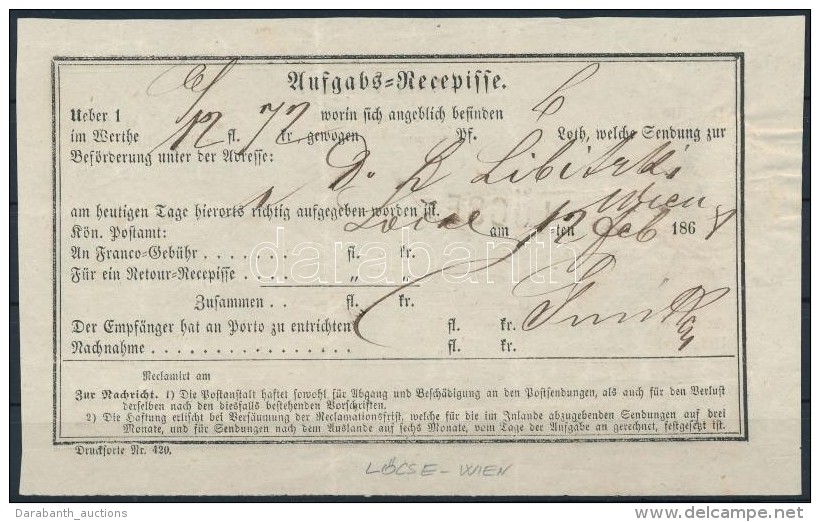 Aufgabs-Recepisse.
Ueber 1 worin sich angeblich befinden
im Werthe 12 fl. 72 kr. gewogen Pf. Loth, welche Sendung zur
Beförderung unter der Adresse:
Wien
am heutigen Tage hierorts richtig aufgegeben worden ist.
Kön. Postamt: am 12 -ten Feb 186
An Franco-Gebühr . . . . . . . fl. kr.
Für ein Retour-Recepisse . . . . „ „
Zusammen . . fl. kr.
Der Empfänger hat an Porto zu entrichten fl. kr.
Nachnahme . . . . . . . . . . . . . . . . fl. kr.
Reclamirt am
Zur Nachricht. 1) Die Postanstalt haftet sowohl für Abgang und Beschädigung an den Postsendungen, als auch für den Verlust
derselben nach den diesfalls bestehenden Vorschriften.
2) Die Haftung erlischt bei Versäumung der Reclamationsfrist, welche für die im Inlande abzugebenden Sendungen auf drei
Monate, und für Sendungen nach dem Auslande auf sechs Monate, vom Tage der Aufgabe an gerechnet, festgesetzt ist.
Drucksorte Nr. 420.
LŐCSE - WIEN
darabanth
Darabanth_auctions
delcampe.net